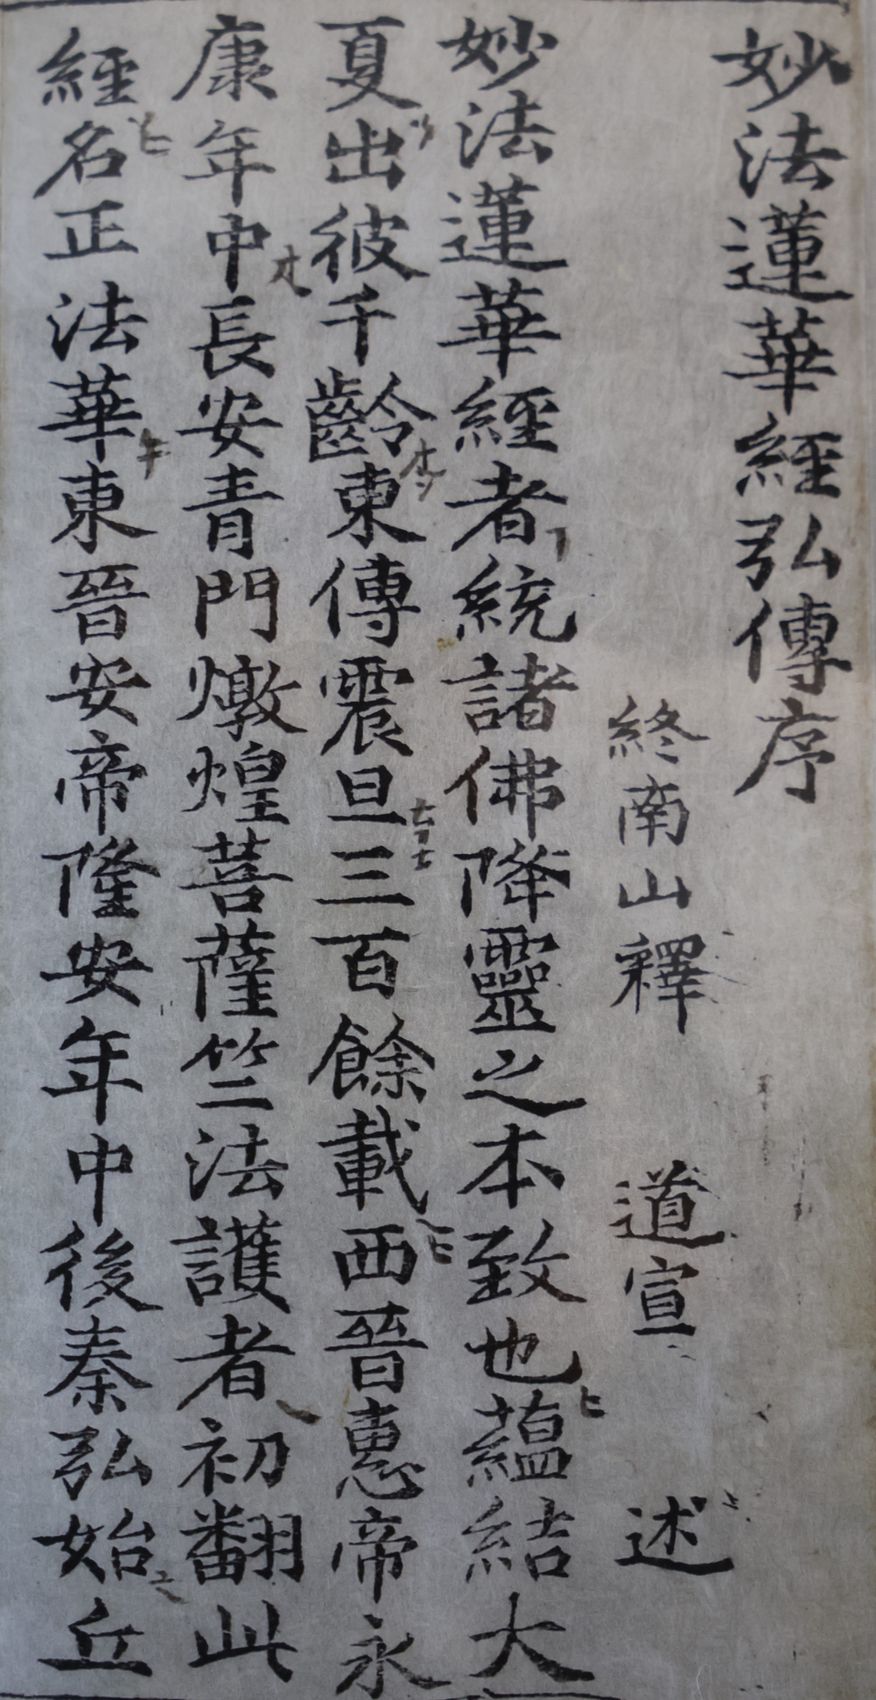 妙法蓮華經弘傳序
終南山釋 道宣 述
妙法蓮華經者統諸佛降靈之本致也蘊結大
夏出彼千齡東傳震旦三百餘載西晉惠帝永
康年中長安青門燉煌菩薩竺法護者初翻此
經名正法華東晉安帝隆安年中後秦弘始丘